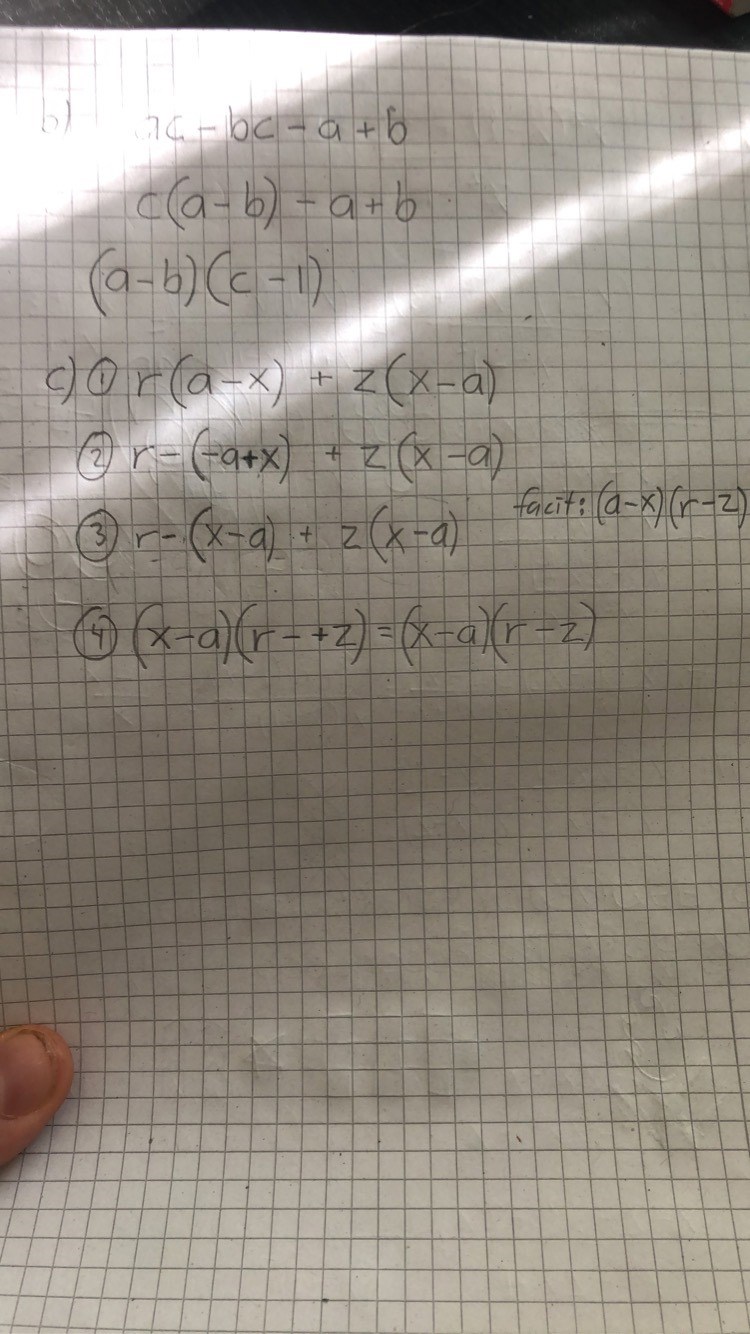 b) ac - bc - a + b
c(a - b) - a + b
(a - b)(c - 1)
c) ① r(a - x) + z(x - a)
② r - (-a + x) + z(x - a)
facit: (a - x)(r - z)
③ r - (x - a) + z(x - a)
④ (x - a)(r - + z) = (x - a)(r - z)